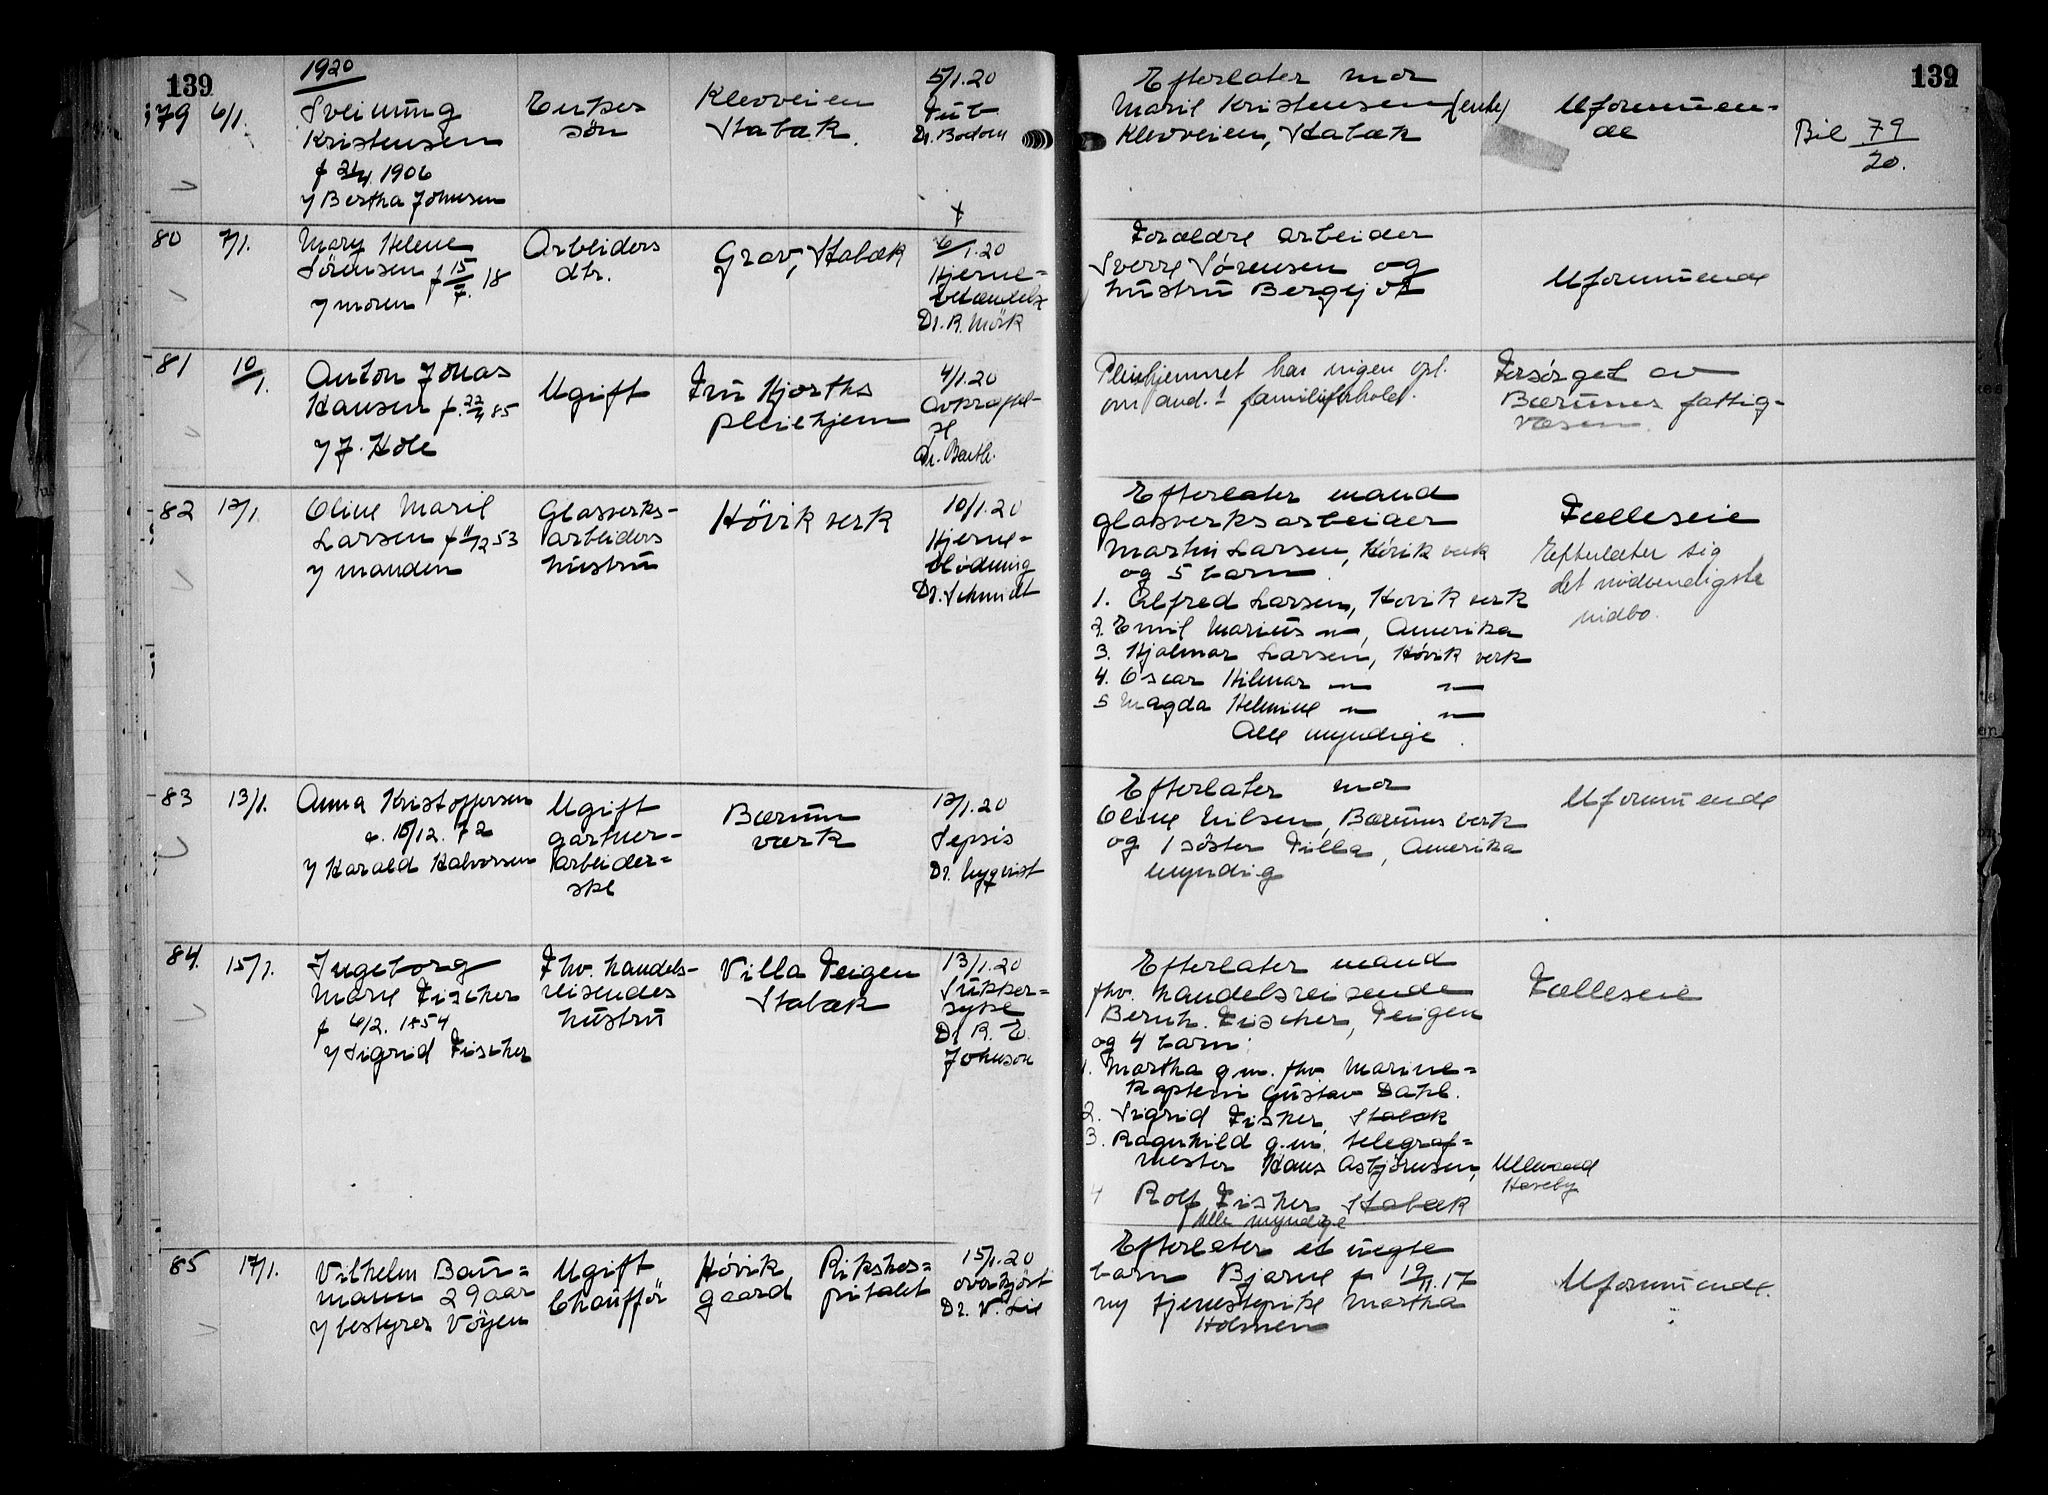 139
1920
79 6/1. Sveinung
Kristensen
f 21/4 1906
v/ Bertha Johnsen
Enkes
søn
Klevveien
Stabæk.
5/1.20
Tub.
Dr. Bodom
Efterlater mor
Maril Kristensen (enke)
Klevveien, Stabæk
Uformuen-
de
Bil 79/20.
139
80 7/1. Mary Helene
Sørensen f 15/7. 18
v/ moren
Arbeiders
dtr.
Grav, Stabæk
6/1.20
Hjerne-
betændelse
Dr. R. Mörk
Forældre arbeider
Sverre Sørensen og
hustru Bergljot
Uformuende
81 10/1. Anton Jonas
Hansen f. 22/4 85
v/ J. Hole
Ugift
Fru Hjorths
pleiehjem
4/1.20
Dr. Barth.
Pleiehjemmet har ingen opl.
om avd.s familieforhold.
Forsørget av
Bærums fattig-
væsen.
82 12/1. Oline Maril
Larsen f 11/12 53
v/ manden
Glasverks-
arbeiders
hustru
Hövik verk
10/1.20
Hjerne-
blödning
Dr. Schmidt
Efterlater mand
glasverksarbeider
Martin Larsen, Hövik verk
og 5 barn.
1. Alfred Larsen, Hövik verk
2. Emil Marius —"—, Amerika
3. Hjalmar Larsen, Hövik verk
4. Oscar Hilmar —"— —"—
5 Magda Helmine —"— —"—
Alle myndige.
Fælleseie
Efterlater sig
det nødvendigste
indbo.
83 13/1. Anna Kristoffersen
f. 15/12. 72
v/ Harald Halvorsen
Ugift
gartner-
arbeider-
ske
Bærum
værk
12/1.20
Sepsis
Dr. Nyqvist
Efterlater mor
Oline Nilsen, Bærums verk
og 1 söster Tilla, Amerika
myndig
Uformuende
84. 15/1. Ingeborg
Marie Fischer
f 6/2. 1854
v/ Sigrid Fischer
Fhv. handels-
reisendes
hustru
Villa Teigen
Stabæk
13/1.20
Sukker-
syke
Dr R. E.
Johnson
Efterlater mand
fhv. handelsreisende
Bernh. Fischer, Teigen
og 4 barn:
1. Martha g.m. fhv Marine-
kaptein Gustav Dahl.
2. Sigrid Fisher, Stabæk
3. Ragnhild g.m. telegraf-
mester Hans Asbjörnsen, Ullevaal
Haveby
4 Rolf Fisher Stabæk
Alle myndige
Fælleseie
85 17/1. Vilhelm Bau-
mann 29 aar
v/ bestyrer Vöyen
Ugift
Chaufför
Hövik
gaard
Rikshos-
pitalet
15/1.20
overkjört
Dr. V. Lie
Efterlater et uegte
barn Bjarne f 19/11.17
m/ tjenestepike Martha
Holmen
Uformuende.